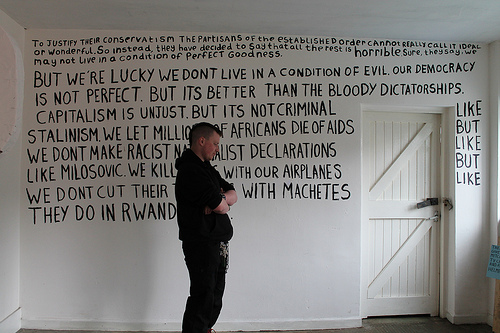 TO JUSTIFY THEIR CONSERVATISM THE PARTISANS OF THE ESTABLISHED ORDER CANNOT REALLY CALL IT IDEAL
or Wonderful. So instead, they have decided to say that all the rest is horrible. Sure, they say, we
may not live in a condition of Perfect Goodness.
BUT WE'RE LUCKY WE DONT LIVE IN A CONDITION OF EVIL. OUR DEMOCRACY
IS NOT PERFECT. BUT ITS BETTER THAN THE BLOODY DICTATORSHIPS.
CAPITALISM IS UNJUST. BUT ITS NOT CRIMINAL
STALINISM. WE LET MILLIO F AFRICANS DIE OF AIDS
WE DONT MAKE RACIST NA LIST DECLARATIONS
LIKE MILOSOVIC. WE KILL WITH OUR AIRPLANES
WE DONT CUT THEIR WITH MACHETES
THEY DO IN RWAND
LIKE
BUT
LIKE
BUT
LIKE